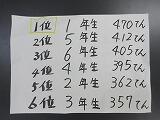 1位 1年生 470てん
2位 5年生 412てん
3位 6年生 405てん
4位 4年生 395てん
5位 2年生 362てん
6位 3年生 357てん